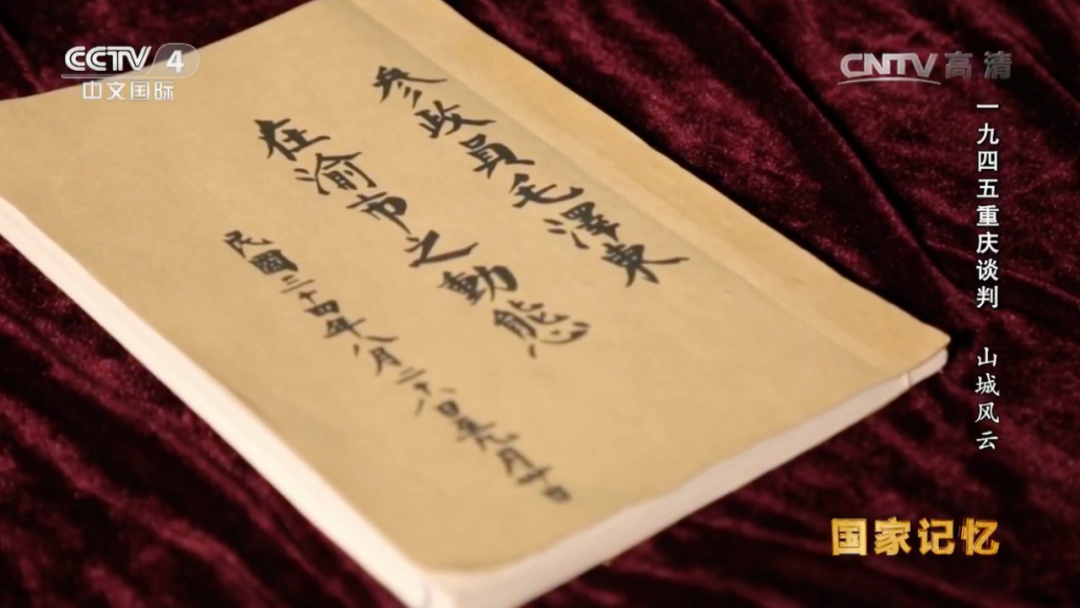 CCTV 4
中文国际
CNTV高清
一九四五重庆谈判 山城风云
參政員毛澤東
在渝市之動態
民國三十四年八月二十八日至九月十日
国家记忆